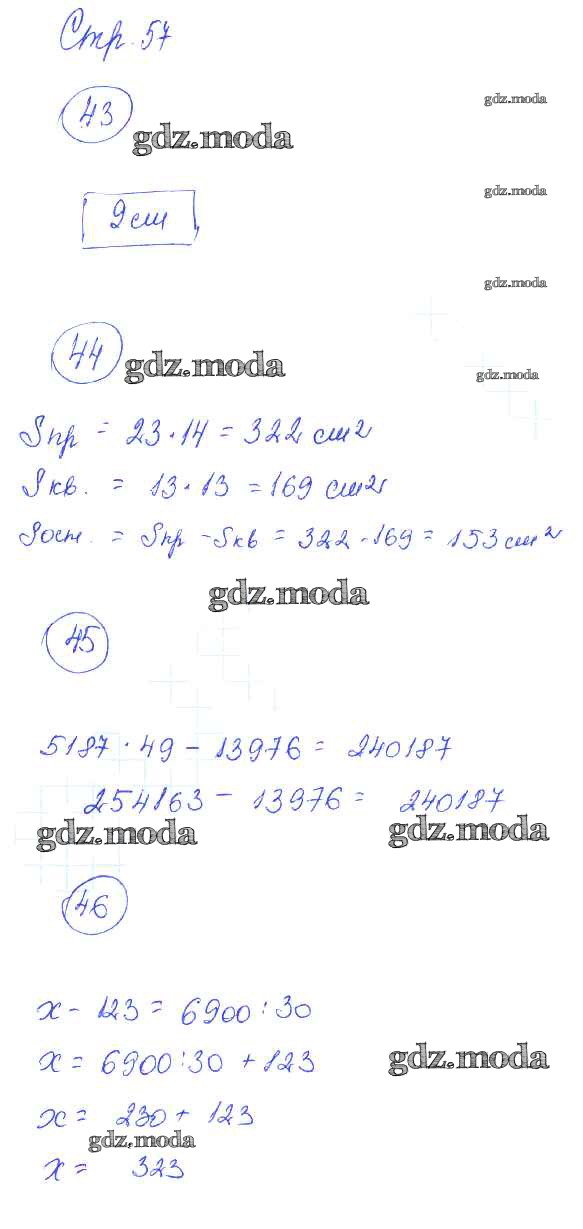 Стр. 57
43
gdz.moda
gdz.moda
gdz.moda
2 см
gdz.moda
44
gdz.moda
gdz.moda
Sпр = 23 · 14 = 322 см²
Sкв. = 13 · 13 = 169 см²
Sост. = Sпр - Sкв = 322 - 169 = 153 см²
gdz.moda
45
5187 · 49 - 13976 = 240187
254163 - 13976 = 240187
gdz.moda
gdz.moda
46
x - 123 = 6900 : 30
x = 6900 : 30 + 123
gdz.moda
x = 230 + 123
gdz.moda
x = 323